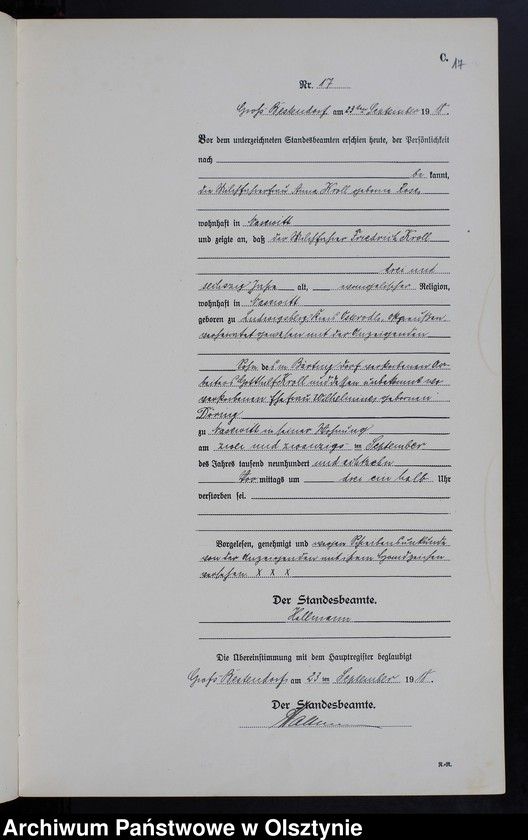 C. 17
Nr. 17
Groß Bestendorf am 23ten September 1918.
Vor dem unterzeichneten Standesbeamten erschien heute, der Persönlichkeit
nach
be kannt,
die Milchfahrerfrau Anna Kroll geborene
wohnhaft in
und zeigte an, daß der Milchfahrer Friedrich Kroll
drei und
sechszig Jahre alt, evangelischer Religion,
wohnhaft in
geboren zu Ludwigsberg, Kreis Osterode, Ostpreußen
verheiratet gewesen mit der Anzeigenden
Sohn des in verstorbenen Ar-
beiters Gotthilf Kroll und dessen unbekannt wo
verstorbenen Ehefrau Wilhelmine, geborenen
Döring
zu in seiner Wohnung
am zwei und zwanzigs ten September
des Jahres tausend neunhundert und achtzehn
Vor mittags um drei ein halb Uhr
verstorben sei.
Vorgelesen, genehmigt und wegen Schreibensunkunde
von der Anzeigenden mit ihrem Handzeichen
versehen x x x
Der Standesbeamte.
Hallmann
Die Übereinstimmung mit dem Hauptregister beglaubigt
Groß Bestendorf am 23 ten September 1918.
Der Standesbeamte.
R.-R.
Archiwum Państwowe w Olsztynie